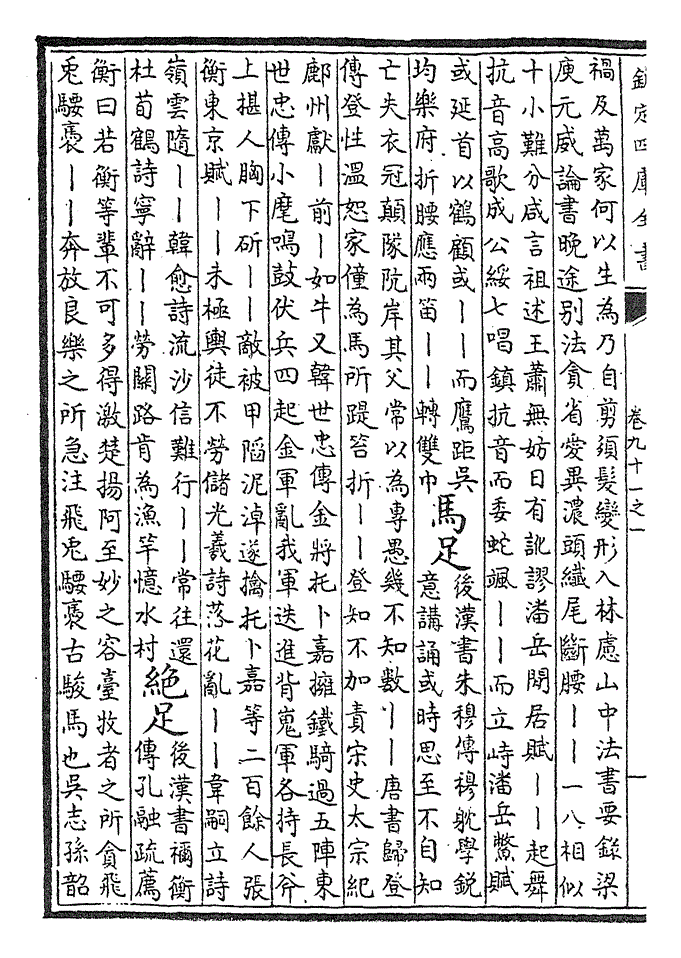 欽定四庫全書
卷九十一之一
一
禍及萬家何以生為乃自剪須髮變形入林慮山中法書要錄梁
庾元威論書晚途别法貪省愛異濃頭纎尾斷腰丨丨一八相似
十小難分咸言祖述王蕭無妨日有訛謬潘岳閒居賦丨丨起舞
抗音高歌成公綏七唱鎮抗音而委蛇颯丨丨而立峙潘岳鷩賦
或延首以鶴顧或丨丨而鷹距吳
均樂府折腰應兩笛丨丨轉雙巾
馬足
後漢書朱穆傳穆躭學銳
意講誦或時思至不自知
亡失衣冠顛隊阬岸其父常以為專愚幾不知數丨丨唐書歸登
傳登性溫恕家僮為馬所踶笞折丨丨登知不加責宋史太宗紀
鄜州獻丨前丨如牛又韓世忠傳金將托卜嘉擁鐵騎過五陣東
世忠傳小麾鳴鼓伏兵四起金軍亂我軍迭進背嵬軍各持長斧
上揕人胸下斫丨丨敵被甲陷泥淖遂擒托卜嘉等二百餘人張
衡東京賦丨丨未極輿徒不勞儲光羲詩落花亂丨丨韋嗣立詩
嶺雲隨丨丨韓愈詩流沙信難行丨丨常往還
杜荀鶴詩寧辭丨丨勞關路肯為漁竿憶水村
絶足
後漢書禰衡
傳孔融疏薦
衡曰若衡等輩不可多得激楚揚阿至妙之容臺牧者之所貪飛
兎騕褭丨丨奔放良樂之所急注飛兎騕褭古駿馬也吳志孫韶